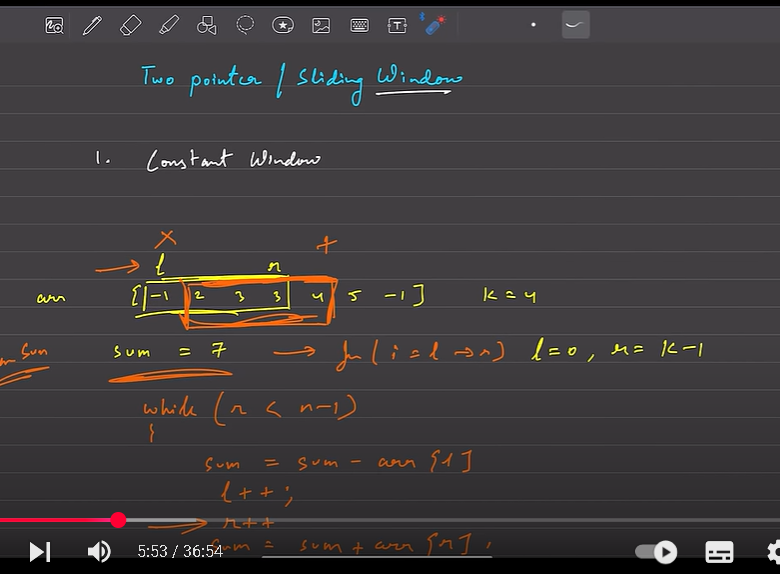 Two pointer / Sliding Window
1. Constant Window
x +
l r
arr [ -1 2 3 3 4 5 -1 ] k = 4
sum sum = 7 → for ( i = l → r ) l = 0 , r = k - 1
while ( r < n - 1 )
{
sum = sum - arr [l]
l + + ;
→ r + +
sum = sum + arr [r] ;
5:53 / 36:54